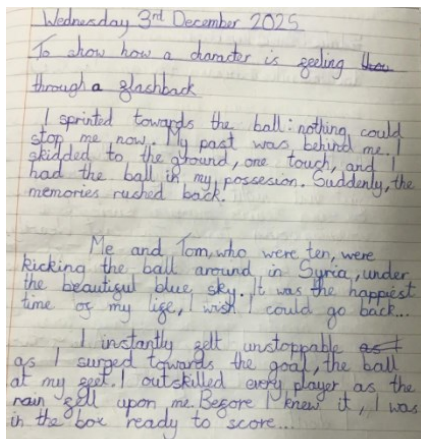 Wednesday 3rd December 2025
To show how a character is feeling
through a flashback
I sprinted towards the ball: nothing could
stop me now. My past was behind me. I
skidded to the ground, one touch, and I
had the ball in my possesion. Suddenly, the
memories rushed back.
Me and Tom, who were ten, were
kicking the ball around in Syria, under
the beautiful blue sky. It was the happiest
time of my life, I wish I could go back...
I instantly felt unstoppable as I
as I surged towards the goal, the ball
at my feet. I outskilled every player as the
rain fell upon me. Before I knew it, I was
in the box ready to score...